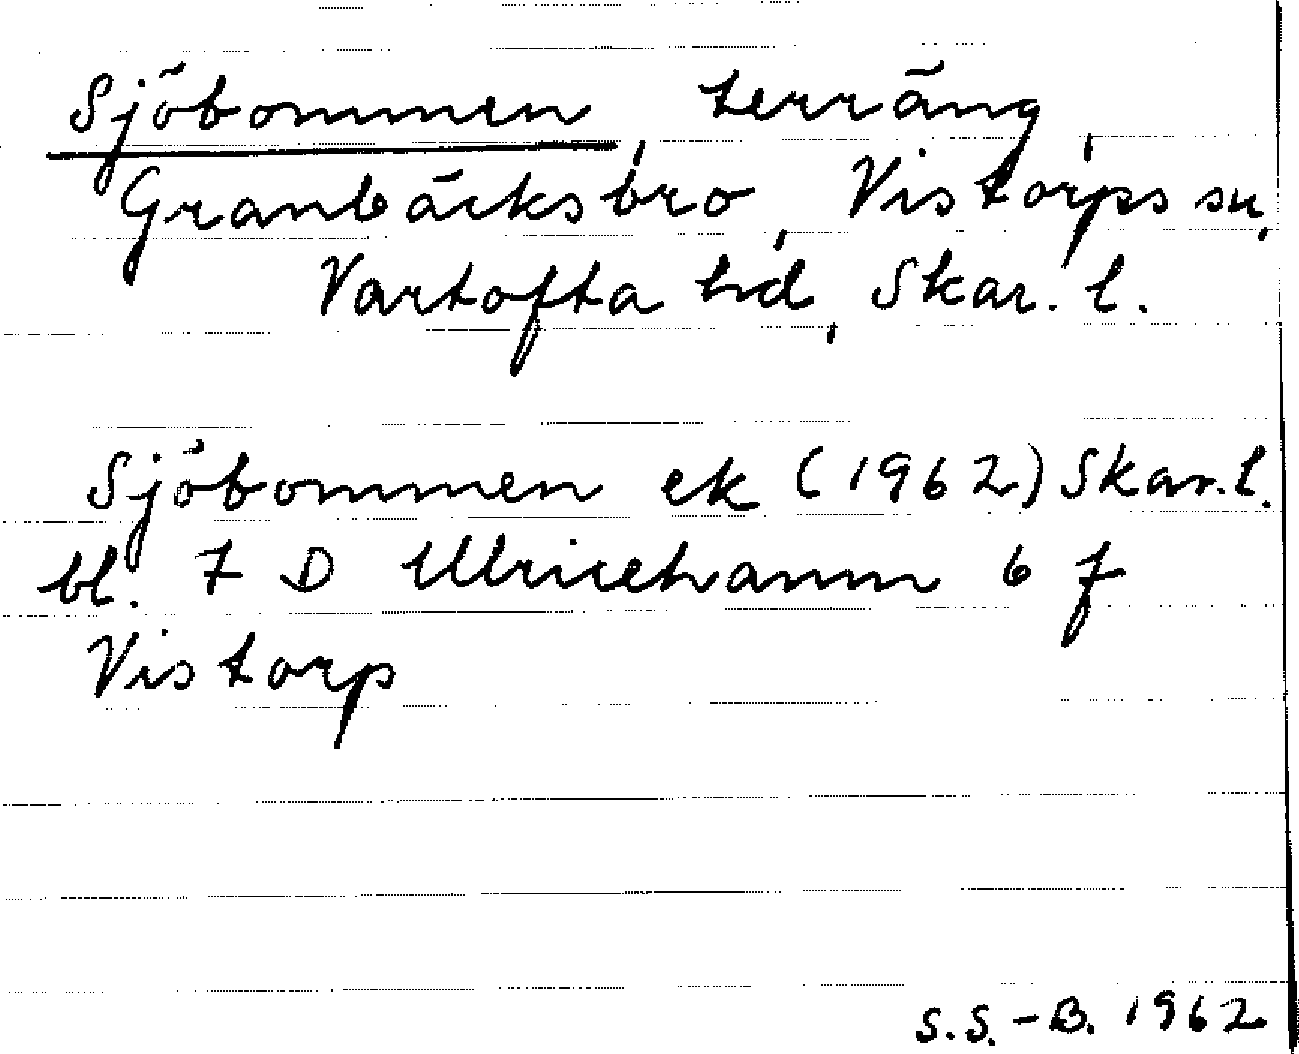 Sjöbommen, terräng,
Granbäcksbro, Vistorps sn,
Vartofta hd, Skar. l.
Sjöbommen ek (1962) Skar. l.
bl. 7 D Ulricehamn 6 f
Vistorp
S.S.-B. 1962